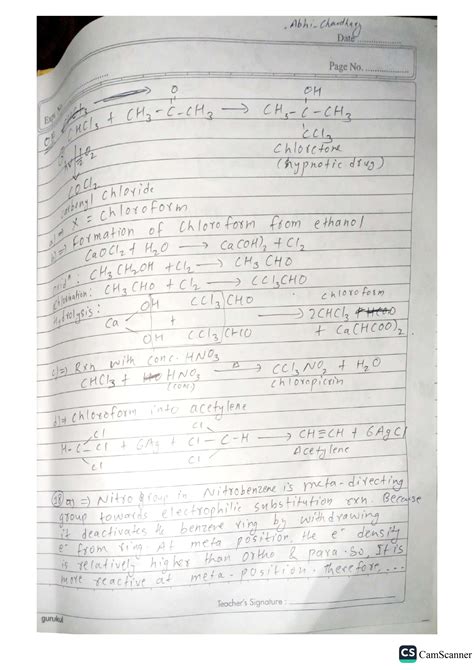 Abhi-Chaudhary
Date
Page No.
Expt. N
O
OH
CHCl3 + CH3-C-CH3 → CH3-C-CH3
CCl3
Chloretone
(hypnotic drug)
COCl2
Carbonyl Chloride
a) ⇒ X = Chloroform
b) ⇒ Formation of Chloroform from ethanol
CaOCl2 + H2O → Ca(OH)2 + Cl2
CH3CH2OH + Cl2 → CH3CHO
CH3CHO + Cl2 → CCl3CHO
Hydrolysis:
OH CCl3CHO chloroform
Ca + → 2CHCl3
OH CCl3CHO + Ca(HCOO)2
c) ⇒ Rxn with conc. HNO3
CHCl3 + HNO3 (conc.) →Δ CCl3NO2 + H2O
chloropicrin
d) ⇒ Chloroform into acetylene
Cl Cl
H-C-Cl + 6Ag + Cl-C-H → CH≡CH + 6AgCl
Cl Cl Acetylene
a) ⇒ Nitro Group in Nitrobenzene is meta-directing
group towards electrophilic substitution rxn. Because
it deactivates the benzene ring by withdrawing
e- from ring. At meta position, the e- density
is relatively higher than ortho & para. So, It is
more reactive at meta-position. Therefore, ...
Teacher's Signature :
gurukul
CS CamScanner